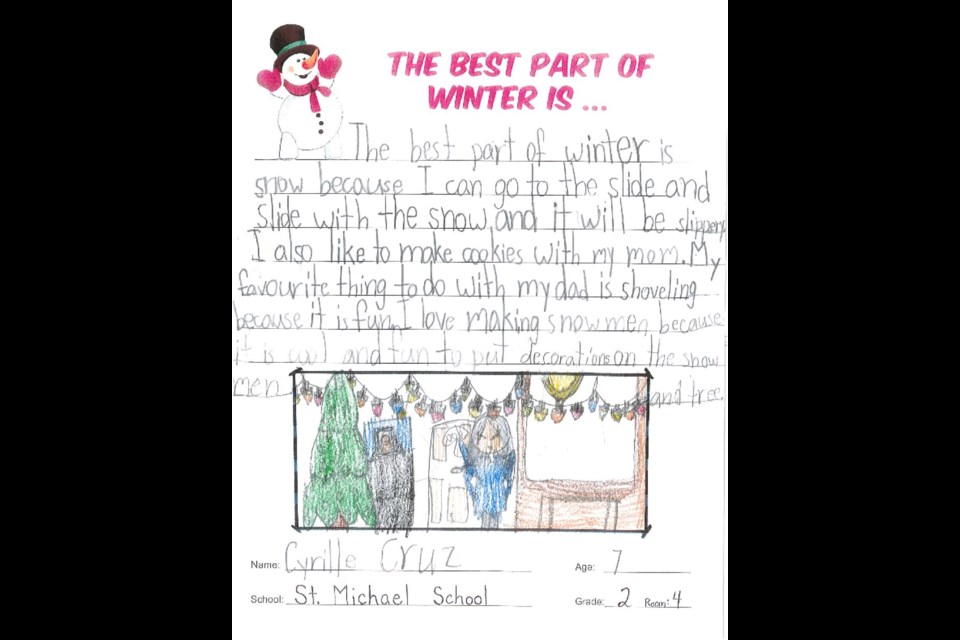 THE BEST PART OF
WINTER IS ...
The best part of winter is
snow because I can go to the slide and
slide with the snow and it will be slippery
I also like to make cookies with my mom. My
favourite thing to do with my dad is shoveling
because it is fun. I love making snow men because
it is cool and fun to put decorations on the snow
men and tree.
Name: Cyrille Cruz Age: 7
School: St. Michael School Grade: 2 Room: 4